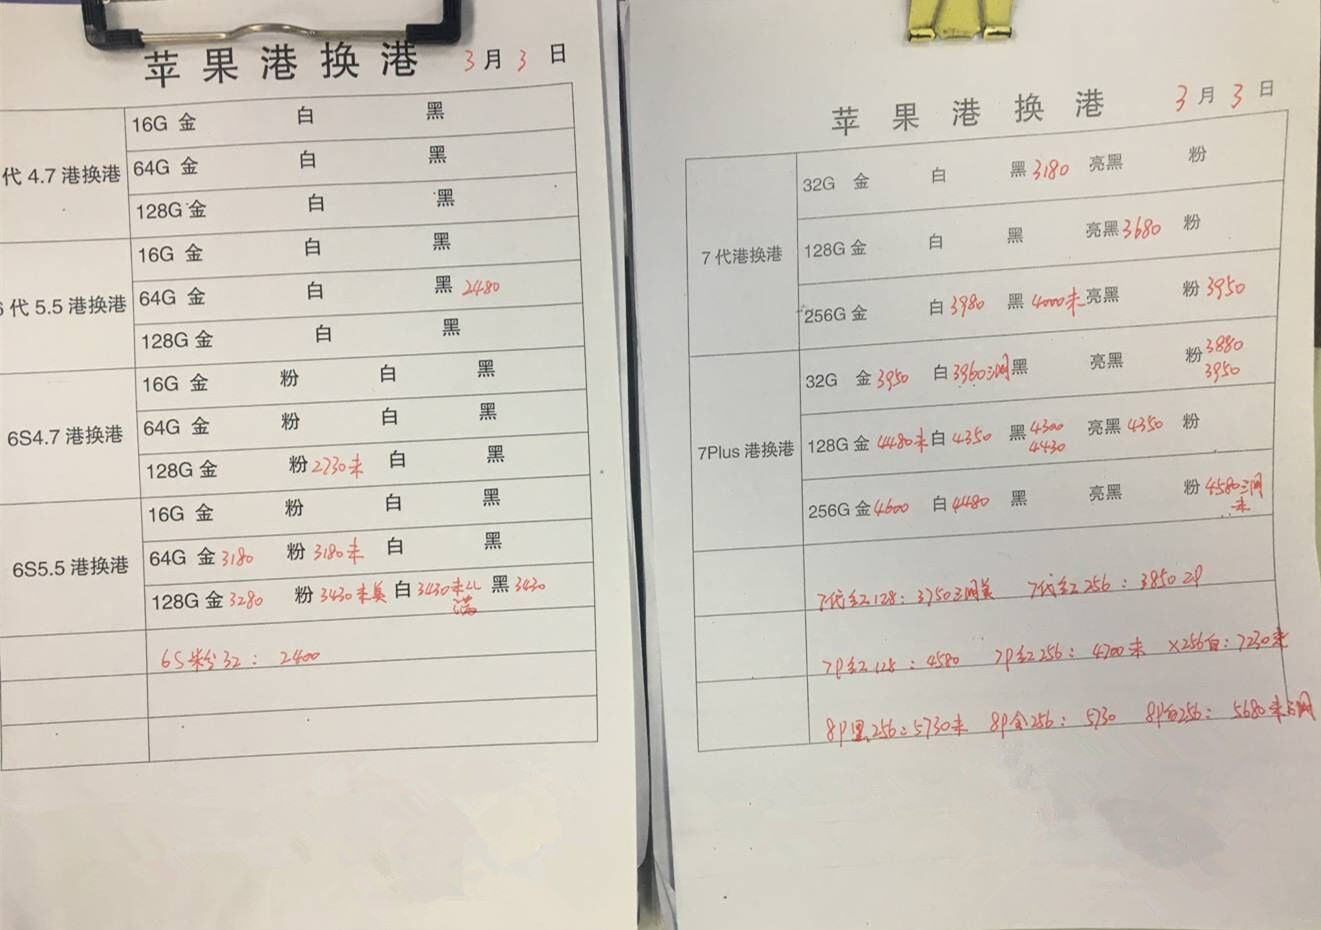 苹果港换港 3月3日
代4.7港换港
16G 金 白 黑
64G 金 白 黑
128G 金 白 黑
6代5.5港换港
16G 金 白 黑
64G 金 白 黑 2480
128G 金 白 黑
6S4.7港换港
16G 金 粉 白 黑
64G 金 粉 白 黑
128G 金 粉 2730未 白 黑
6S5.5港换港
16G 金 粉 白 黑
64G 金 3180 粉 3180未 白 黑
128G 金 3280 粉 3430未美 白 3430未 满 黑 3430
6S粉32：2400
苹果港换港 3月3日
7代港换港
32G 金 白 黑 3180 亮黑 粉
128G 金 白 黑 亮黑 3680 粉
256G 金 白 3980 黑 4000未 亮黑 粉 3950
7Plus港换港
32G 金 3950 白 3960三网 黑 亮黑 粉 3880 3950
128G 金 4480未 白 4350 黑 4300 4430 亮黑 4350 粉
256G 金 4600 白 4480 黑 亮黑 粉 4580三网未
7代红128：3750三网美 7代红256：3850
7P红128：4580 7P红256：4700未 X256白：7230未
8P黑256：5730未 8P金256：5730 8P白256：5680未三网